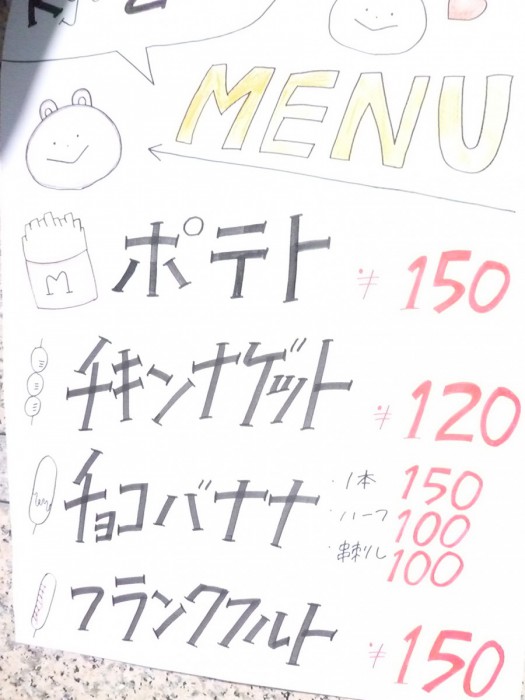 MENU
M
ポテト ¥150
チキンナゲット ¥120
チョコバナナ ・1本 150
・ハーフ 100
・串刺し 100
フランクフルト ¥150